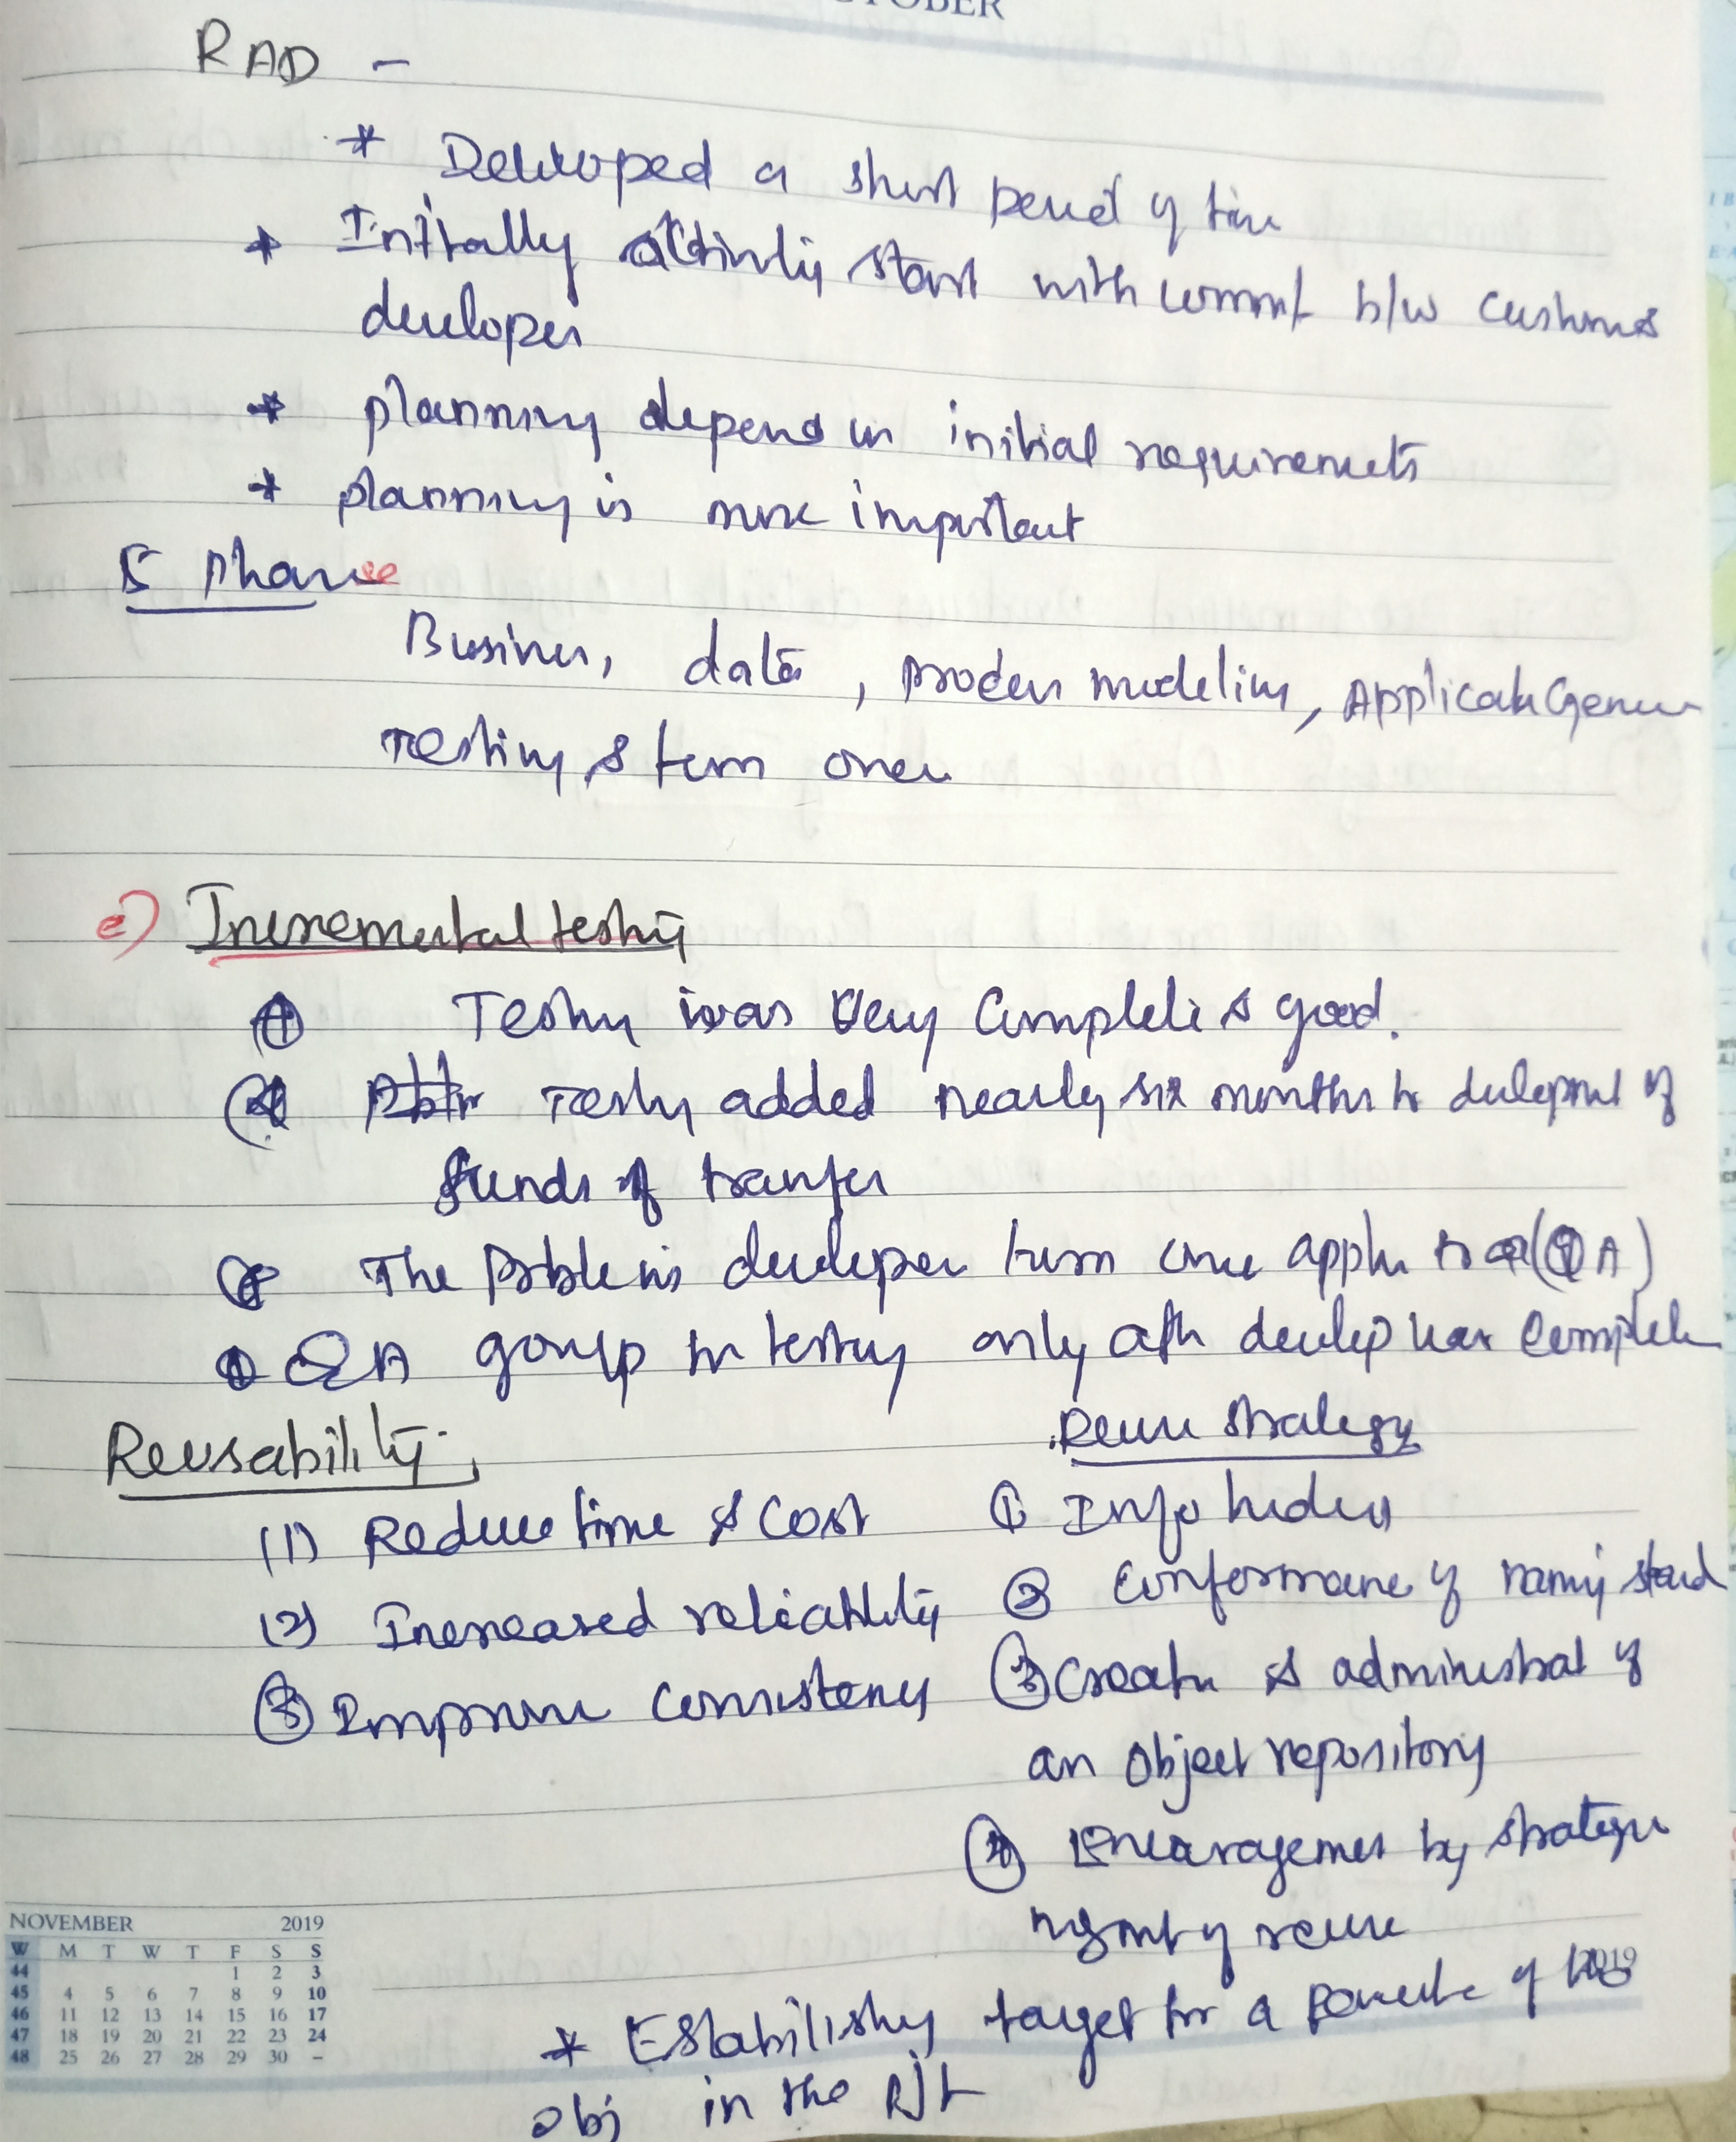 OCTOBER
RAD -
* Developed a short period of time
* Initially activity start with commt b/w customer
developer
* planning depend on initial requirements
* planning is more important
5 Phase
Business, data, process modeling, Applicatn Gener
Testing & turn over
e) Incremental testing
Testing was very Complete & good.
Testy added nearly six months to devlepment of
funds of transfer
The Problem is developer turn over appln to (QA)
QA group for testing only aftr develop has complete
Reusability
Reuse strategy
(1) Reduce time & cost
① Info hiden
(2) Increased reliability
② Conformance of naming stand
③ Improve consistency
③ Creatn & administrat of
an object repository
④ Encouragement by strategic
mgmt of reuse
* Establishy target for a percente of
obj in the PJt
NOVEMBER 2019
W M T W T F S S
44 1 2 3
45 4 5 6 7 8 9 10
46 11 12 13 14 15 16 17
47 18 19 20 21 22 23 24
48 25 26 27 28 29 30 -
2019